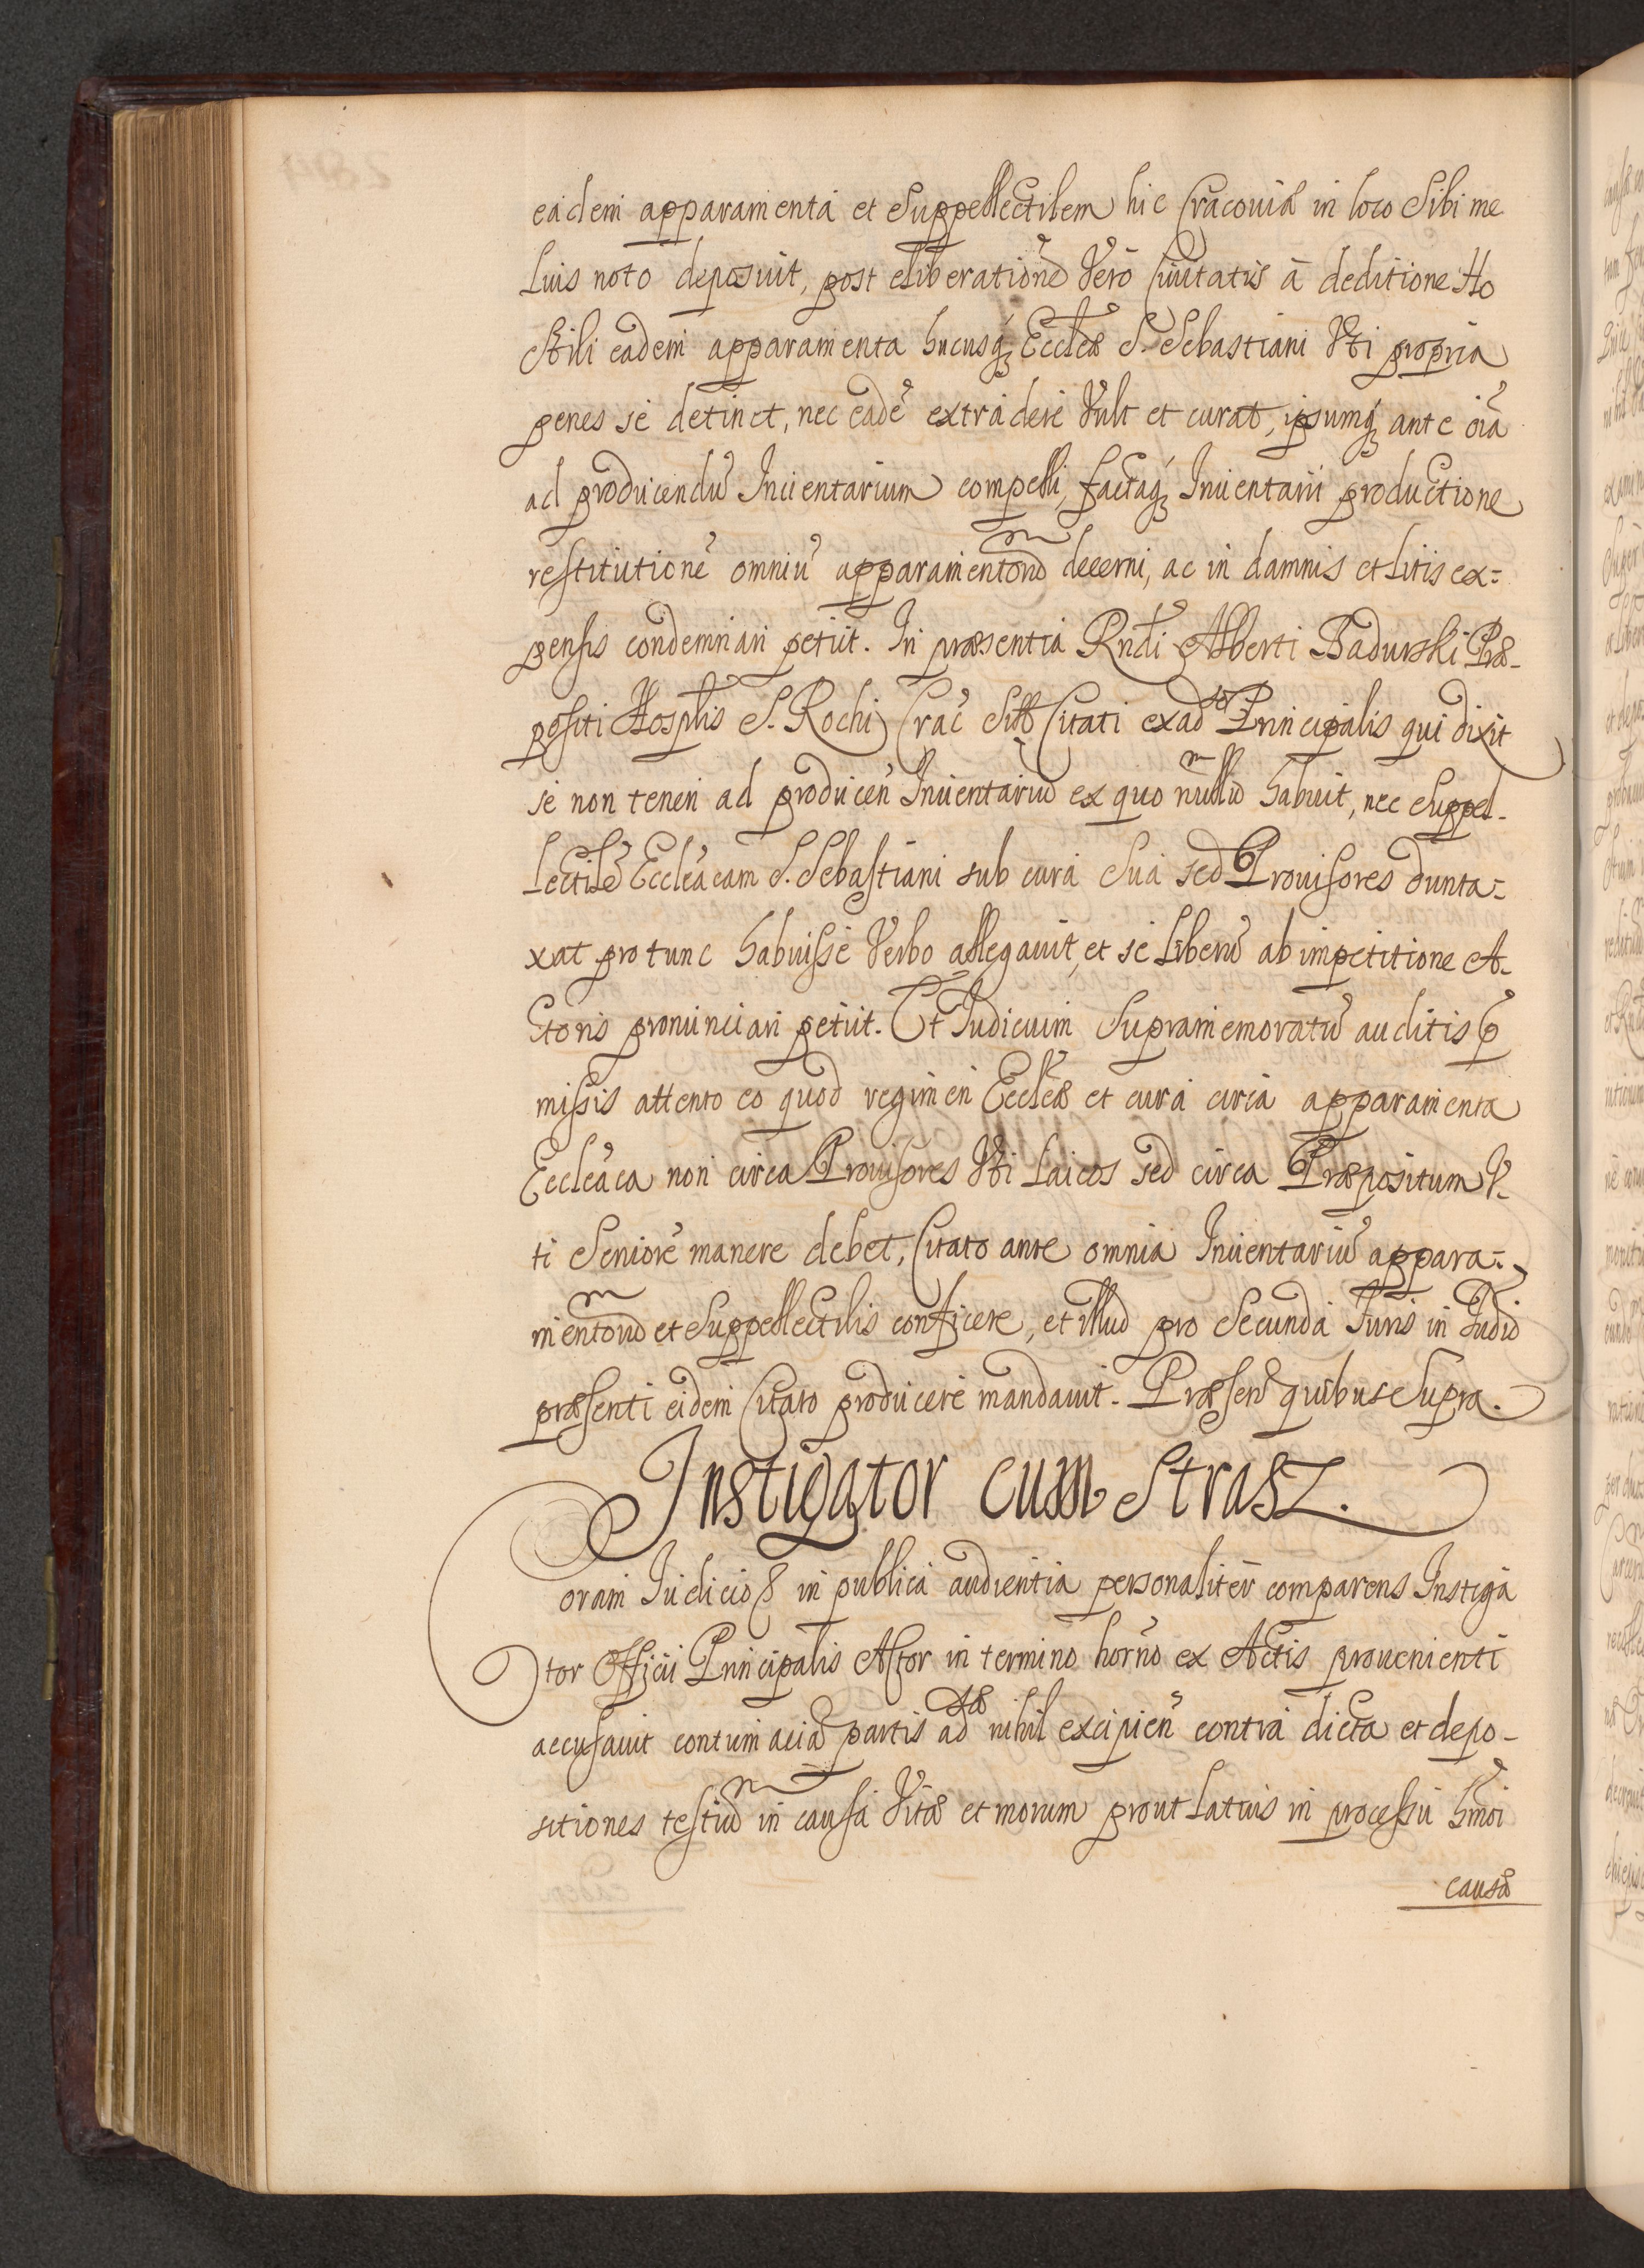 eadem apparamenta et Suppellectilem hic Cracoviæ in loco Sibi me
Lius noto deposuit, post eliberationẽ Verò Civitatis à deditione Ho
Stili eadem apparamenta hucusq₃ Eccl̃æ S. Sebastiani Vti propria
penes se detinet, nec eadẽ extradere Vult et curat, ipsumq₃ ante oĩa
ad producendũ Inuentarium compelli, factaq₃ Inuentarii productione
restitutionẽ omniũ apparamentorũ decerni, ac in damnis et Litis ex=
pensis condemnari petiit. In præsentia Rndi Alberti Badurski Præ-
positi Hosplis S. Rochi Crac̃ Citati ex adso Principalis qui dixit
se non teneri ad produceñ Inuentariũ ex quo nullũ habuit, nec Suppel-
Lectilẽ Eccleãcam S. Sebastiani sub cura Sua sed Prouisores dunta=
xat pro tunc habuisse Verbo allegauit, et se Liberũ ab impetitione A-
Ctoris pronunciari petiit. Et Iudicium Supramemoratũ auditis p̃
missis attento eo quod regimen Eccl̃æ et cura circa apparamenta
Eccleãca non circa Prouisores Vti Laicos sed circa Præpositum V-
ti Seniorẽ manere debet, Citato ante omnia Inuentariũ appara=
mentorũ et Suppellectilis conficere, et illud pro Secunda Iuris in Iudio
præsenti eidem Citato producere mandauit. Præsenĩ quibus Supra.
Instigator cum Strasz.
Coram Iudicio &c in publica audientia personaliter comparens Instiga
tor Officii Principalis Actor in termino horñõ ex Actis prouenienti
accusauit contumaciã partis adsæ nihil excipieñ contra dicta et depo-
sitiones testiũ in causa Vitæ et morum prout Latius in processu hmõi
causæ